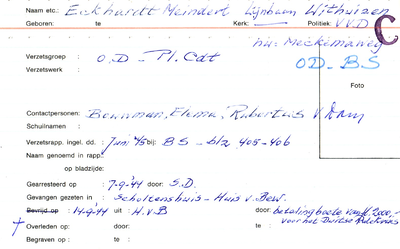 Naam etc: Eckhardt Meindert Lijnbaan Withuizen
Geboren: te Kerk: Politiek: V.V.D C
nu: Meckemaweg
Verzetsgroep : O.D - Pl. Cdt OD-BS
Verzetswerk :
Foto
Contactpersonen: Bouwman, Elema, Robertus v. Dam
Schuilnamen :
Verzetsrapp. ingel. dd. : Juni 45 bij: BS - blz 405-406
Naam genoemd in rapp.:
op bladzijde:
Gearresteerd op : 7-9-'44 door: S.D.
Gevangen gezeten in : Scholtenshuis - Huis v. Bew.
Bevrijd op : 14-9-'44 uit : H.v.B door: betaling boete van fl. 2000,-
voor het Duitse Rode Kruis
Overleden op: door: te :
Begraven op : te :